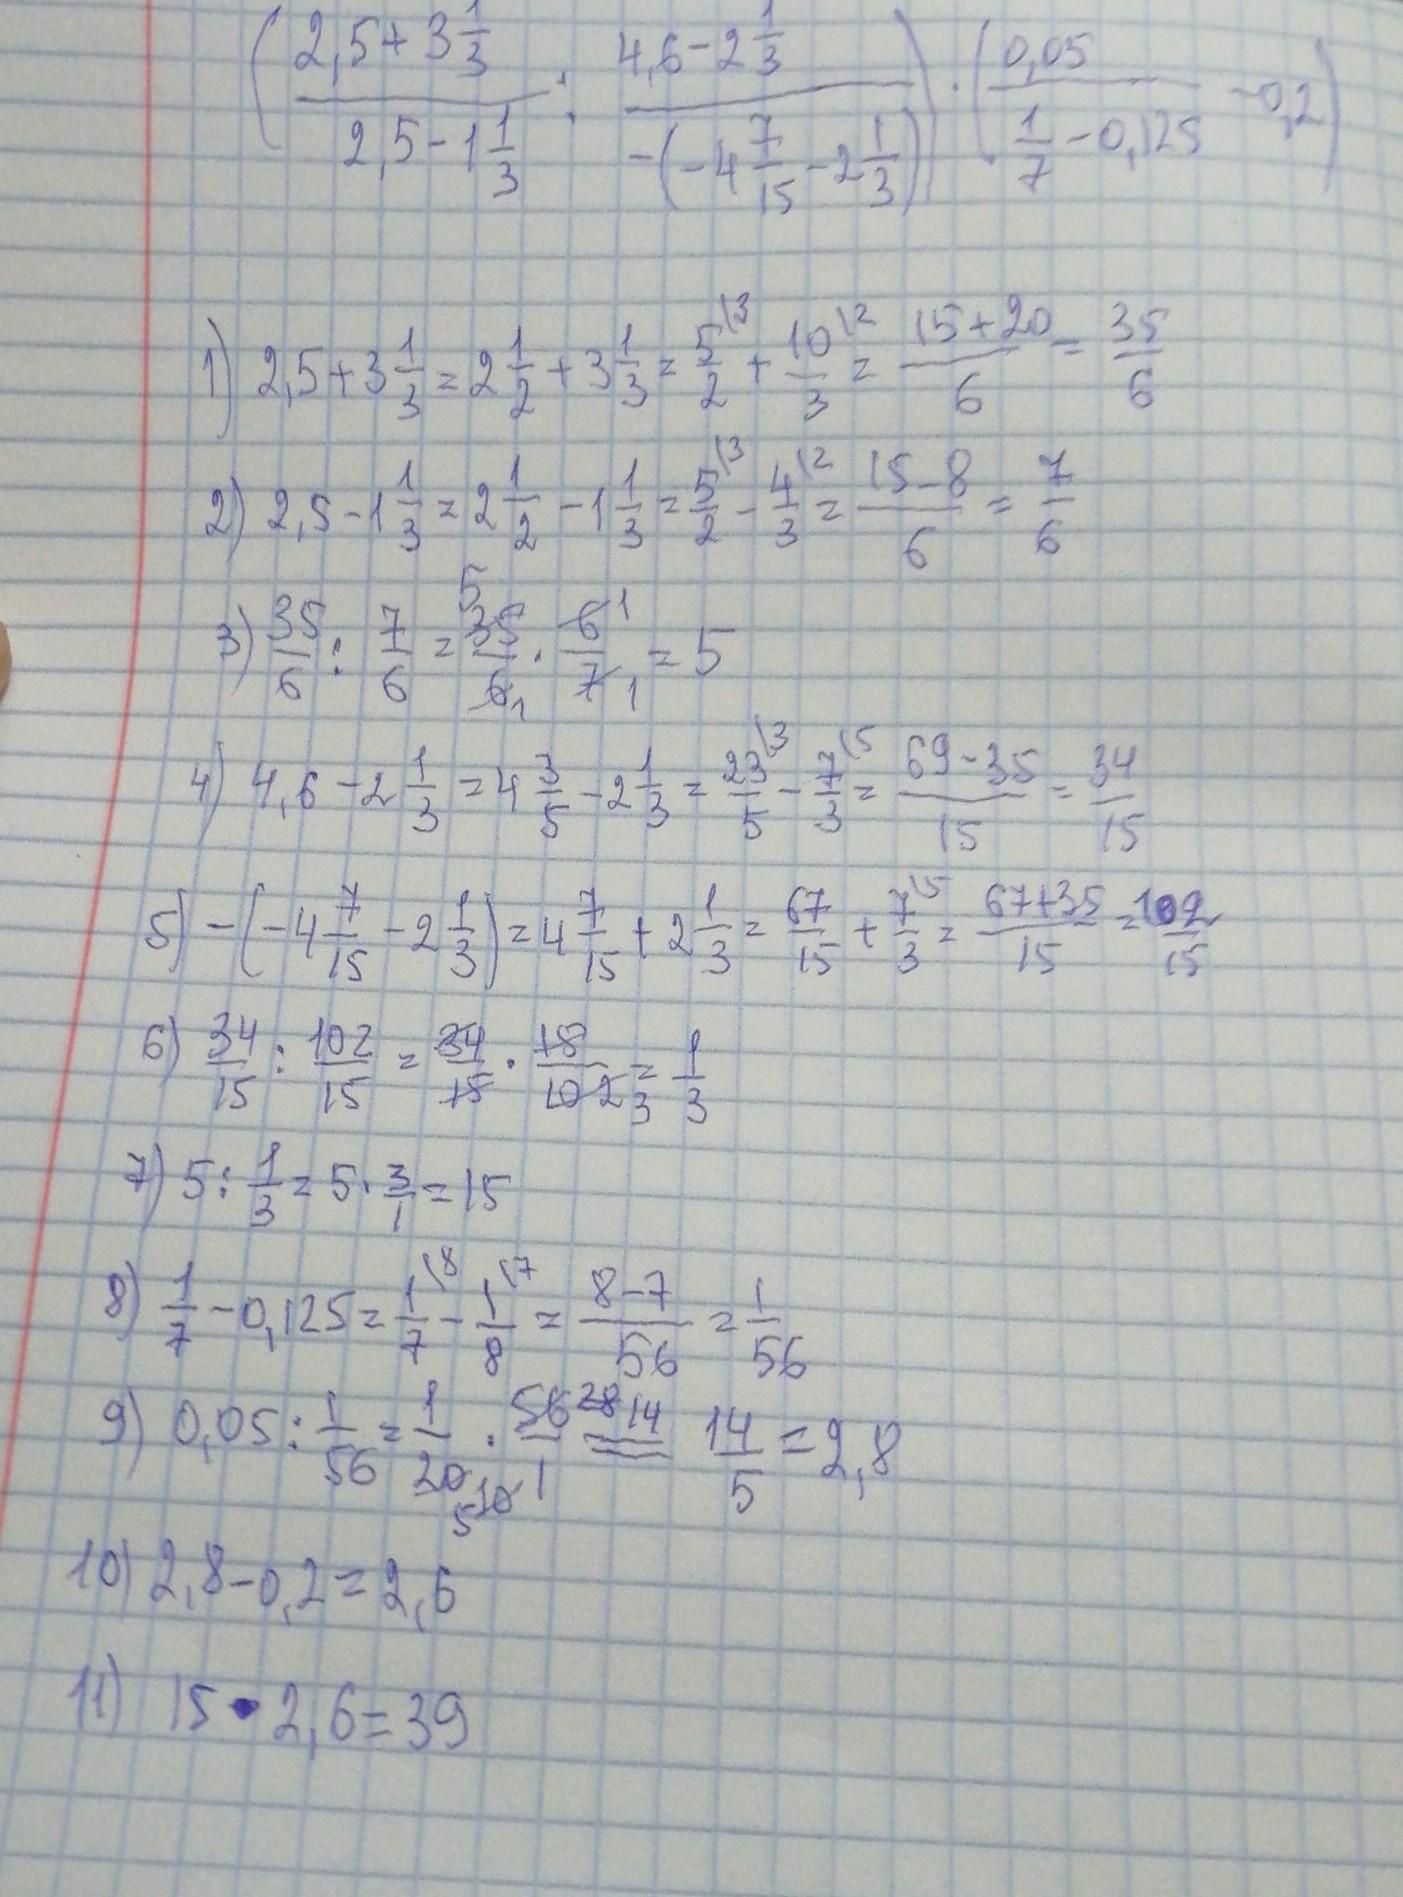 (2,5+3 1/3 / 2,5-1 1/3 : 4,6-2 1/3 / -(-4 7/15 -2 1/3)) · (0,05 / 1/7 -0,125 -0,2)
1) 2,5+3 1/3 = 2 1/2 + 3 1/3 = 5/2 \3 + 10/3 \2 = 15+20/6 = 35/6
2) 2,5-1 1/3 = 2 1/2 -1 1/3 = 5/2 \3 - 4/3 \2 = 15-8/6 = 7/6
3) 35/6 : 7/6 = 35/6 5 1 · 6/7 1 1 = 5
4) 4,6-2 1/3 = 4 3/5 -2 1/3 = 23/5 \3 - 7/3 \5 = 69-35/15 = 34/15
5) -(-4 7/15 -2 1/3) = 4 7/15 + 2 1/3 = 67/15 + 7/3 \5 = 67+35/15 = 102/15
6) 34/15 : 102/15 = 34/15 · 15/102 3 = 1/3
7) 5 : 1/3 = 5 · 3/1 = 15
8) 1/7 -0,125 = 1/7 \8 - 1/8 \7 = 8-7/56 = 1/56
9) 0,05 : 1/56 = 1/20 10 5 · 56/1 28 14 = 14/5 = 2,8
10) 2,8-0,2=2,6
11) 15 · 2,6=39